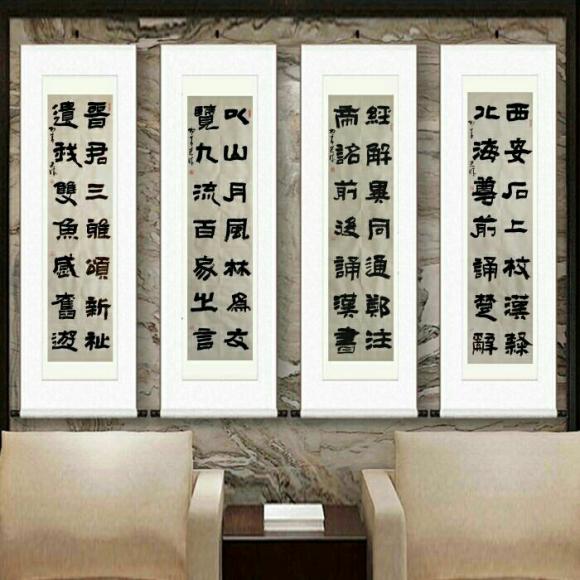 西安石上校漢隸
北海尊前誦楚辭
經解異同通鄭注
詔前後誦漢書
以山月風林為友
覽九流百家之言
晉君三雅頌新祉
遺我雙魚感舊遊